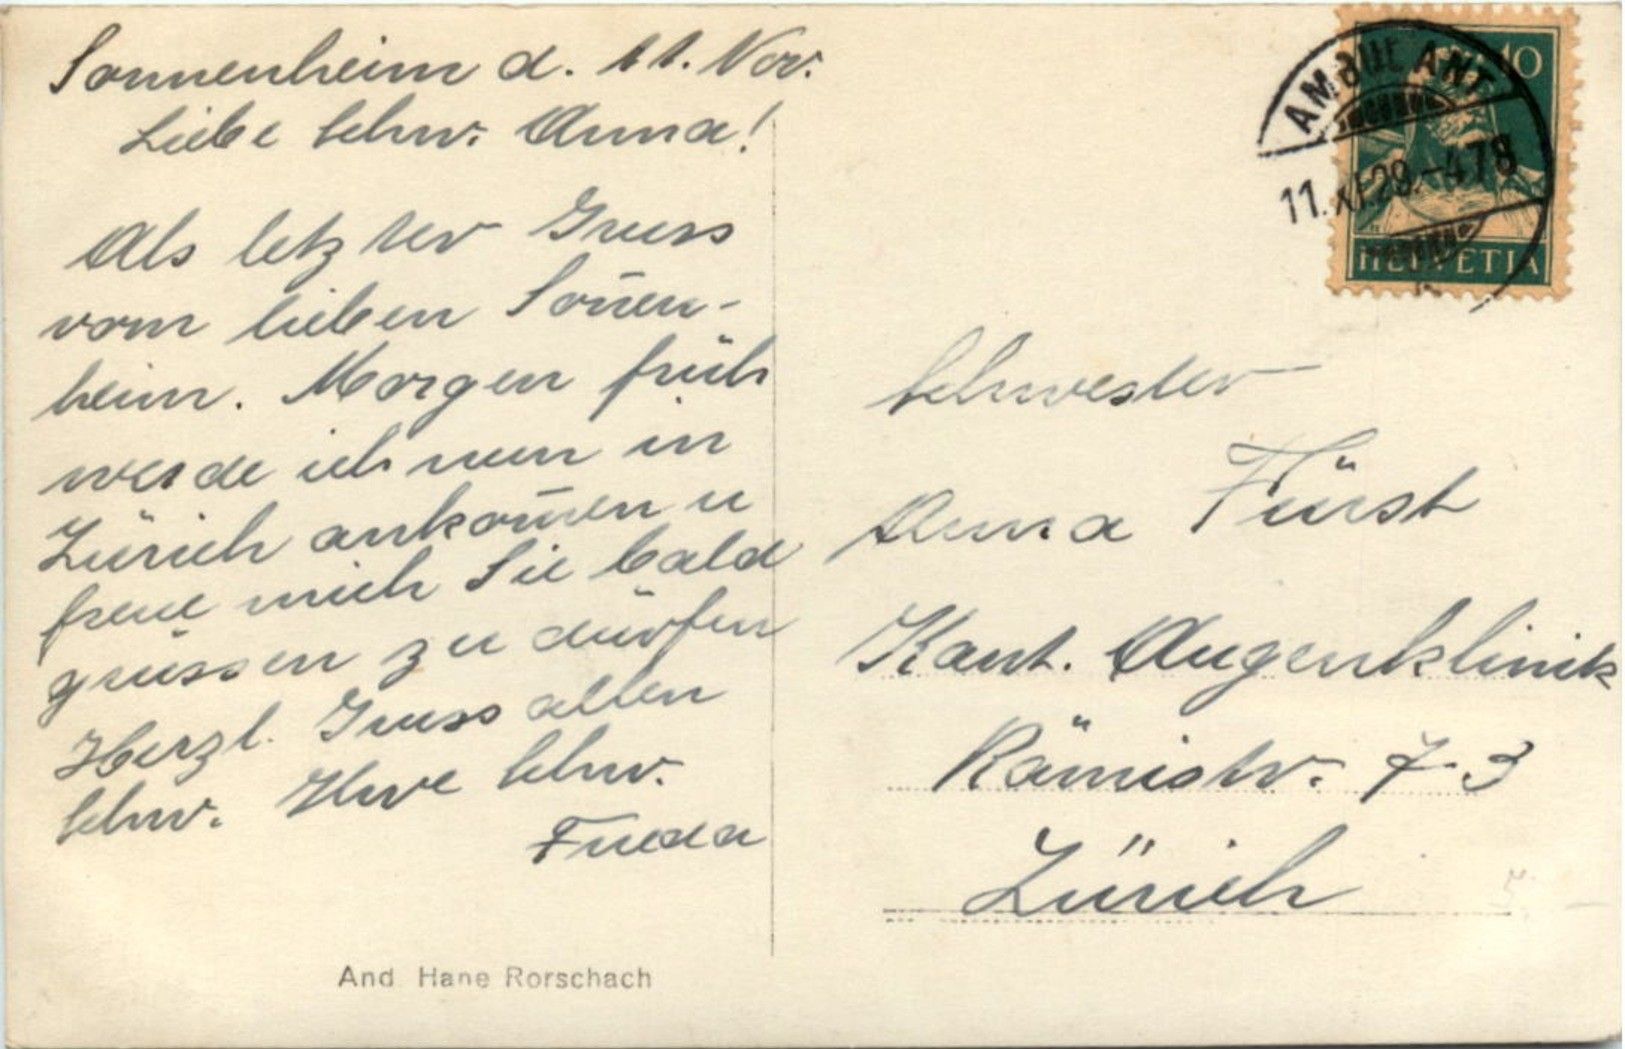 Sonnenheim d. 11. Nov.
Liebe Schw. Anna!
Als letzter Gruss
vom lieben Soñen-
heim. Morgen früh
werde ich nun in
Zürich ankom̄en u
freue mich Sie bald
grüssen zu dürfen
Herzl. Gruss allen
Schw. Ihre Schw.
Frieda
And Hane Rorschach
AMBULANT
11.XI.29.-478
10
HELVETIA
Schwester
Anna Fürst
Kant. Augenklinik
Rämistr. 73
Zürich